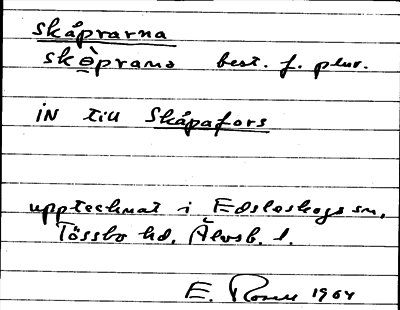 skåprarna
skòprana best. f. plur.
iN till Skåpafors
upptecknat i Edsleskogs sn,
Tössbo hd, Älvsb. l.
E. 1964